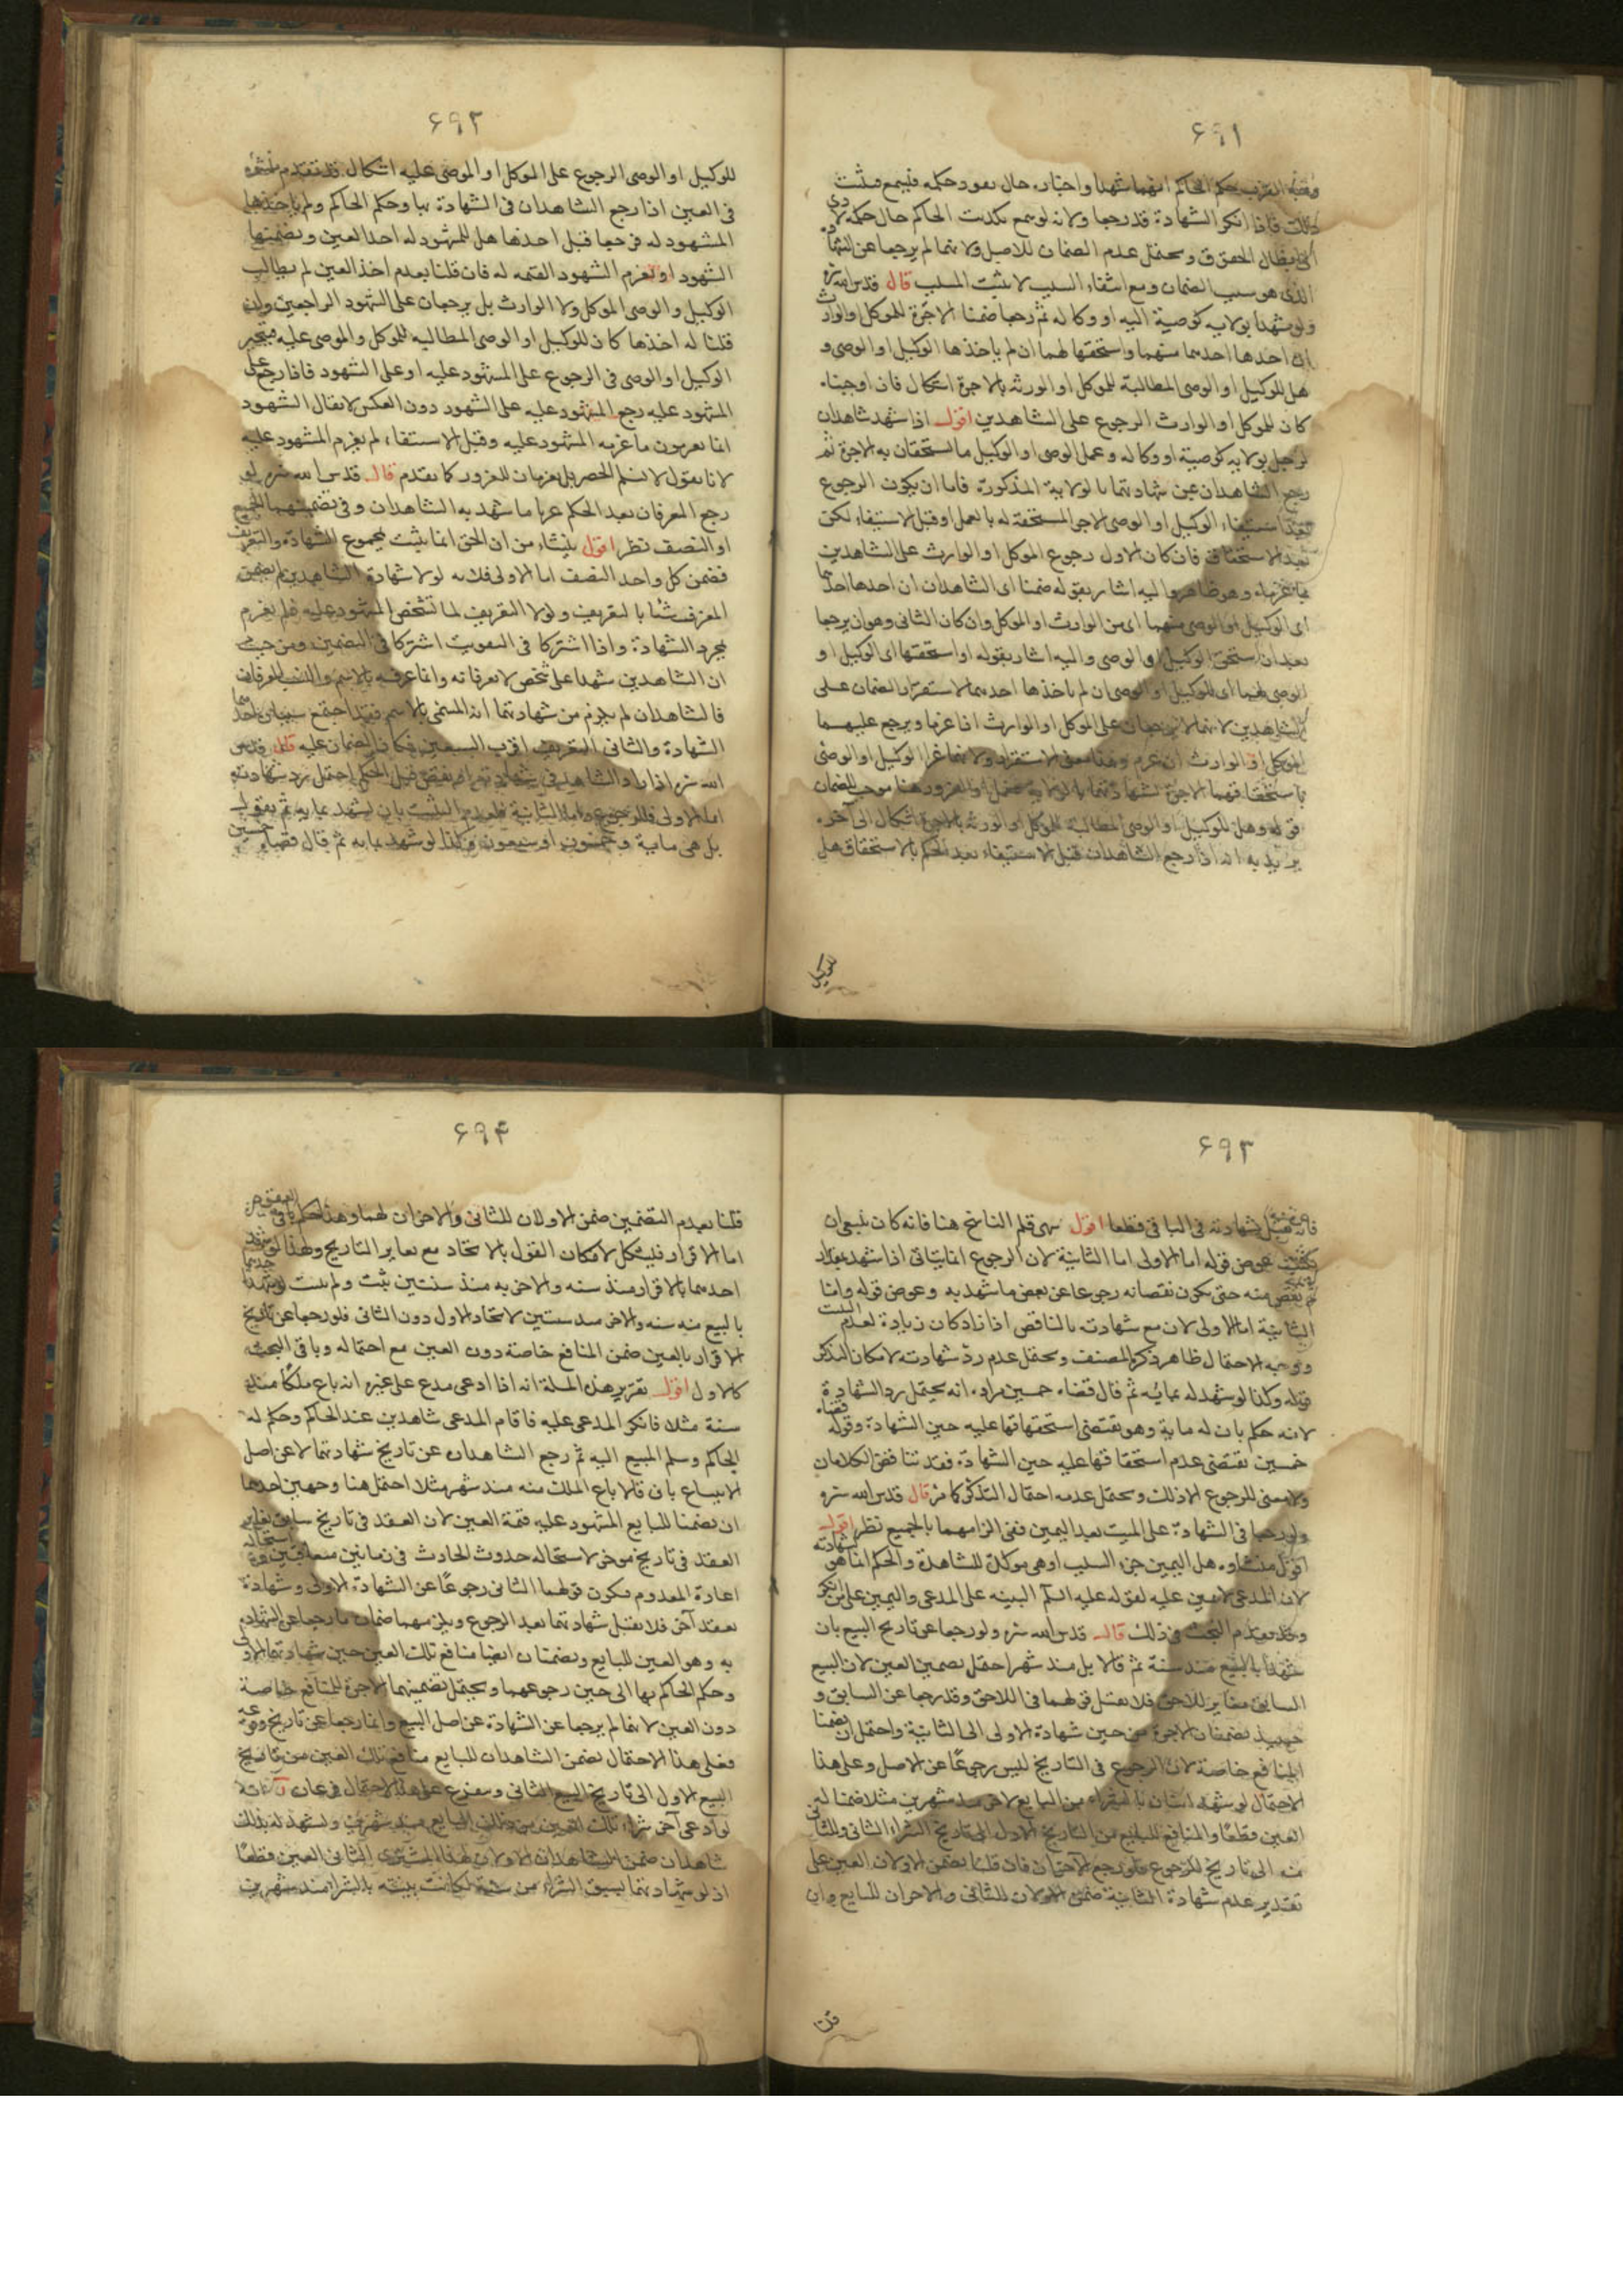 ٦٩١
الحاكم انهما شهدا واخبار حال نفود حكمه
فاذا انكر الشهادة فقد رجعا ولانه لو سمع تكذيب الحاكم حال حكمه
الحقوق ويحتمل عدم الضمان للاصل ولانهما لم يرجعا عن الشهادة
الذى هو سبب الضمان ومع انتفاء السبب لا يثبت المسبب قال قدس الله سره
ولو شهدا بولايه كوصية اليه او وكاله ثم رجعا ضمنا الاجرة للموكل او الوارث
ان اخذها احدهما منهما واستحقها لهما ان لم ياخذها الوكيل او الوصى و
هل للوكيل او الوصى المطالبة للموكل او الورثه بالاجرة اشكال فان اوجبناه
كان للموكل او الوارث الرجوع على الشاهدين اقول اذا شهد شاهدان
لرجل بولايه كوصية او وكاله وعمل الوصى او الوكيل ما يستحقان به الاجرة ثم
رجع الشاهدان عن شهادتهما بالولاية المذكورة فاما ان يكون الرجوع
بعد استيفاء الوكيل او الوصى الاجر المستحقة له بالعمل او قبل الاستيفاء لكن
بعد الاستحقاق فان كان الاول رجوع الموكل او الوارث على الشاهدين
بما غرماه وهو ظاهر واليه اشار بقوله ضمنا اى الشاهدان ان اخذها احدهما
اى الوكيل او الوصى منهما اى من الوارث او الموكل وان كان الثانى وهو ان يرجعا
بعد ان استحق الوكيل او الوصى واليه اشار بقوله او استحقها اى الوكيل او
الوصى لهما اى للوكيل او الوصى ان لم ياخذها احدهما لاستقرار الضمان على
الشاهدين لانهما لا يرجعان على الموكل او الوارث اذا غرما ويرجع عليهما
الموكل او الوارث ان غرم وهذا معنى الاستقرار ولانهما غرا الوكيل او الوصى
باستحقاقهما الاجرة لشهادتهما بالولايه والغرور هنا موجب للضمان
قوله وهل للوكيل او الوصى المطالبة للموكل او الورثه بالاجرة اشكال الى آخره
يريد به انه اذا رجع الشاهدان قبل الاستيفاء بعد الحكم بالاستحقاق هل
٦٩٢
للوكيل او الوصى الرجوع على الموكل او الموصى عليه اشكال قد تقدم
فى العين اذا رجع الشاهدان فى الشهادة بها وحكم الحاكم ولم ياخذها
المشهود له فرجعا قبل اخذها هل للمشهود له اخذ العين وتضمينها
الشهود او تغرم الشهود القيمه له فان قلنا بعدم اخذ العين لم يطالب
الوكيل والوصى الموكل ولا الوارث بل يرجعان على الشهود الراجعين وان
قلنا له اخذها كان للوكيل او الوصى المطالبه للموكل والموصى عليه فيتخير
الوكيل او الوصى فى الرجوع على المشهود عليه او على الشهود فاذا رجع على
المشهود عليه رجع المشهود عليه على الشهود دون العكس لا يقال الشهود
انما يغرمون ما غرمه المشهود عليه وقبل الاستيفاء لم يغرم المشهود عليه
لانا نقول لا نسلم الحصر بل يغرمان للغرور كما تقدم قال قدس الله سره لو
رجع المعرفان بعد الحكم غرما ما شهد به الشاهدان وفى تضمينهما الجميع
او النصف نظر اقول ينشاء من ان الحق انما يثبت بمجموع الشهادة والتعريف
فضمن كل واحد النصف اما الاولى فلانه لولا شهادة الشاهدين لم يضمن
المعرف شئا بالتعريف ولولا التعريف لما تشخص المشهود عليه فلم يغرم
بمجرد الشهادة واذا اشتركا فى التفويت اشتركا فى التضمين ومن حيث
ان الشاهدين شهدا على شخص لا يعرفانه وانما عرفه بالاسم والنسب المعرفان
فالشاهدان لم يجزم من شهادتهما انه المسمى بالاسم فقد اجتمع سببان احدهما
الشهادة والثانى التعريف اقرب السببين فكان الضمان عليه قال قدس
الله سره اذا زاد الشاهد فى شهادته او نقص قبل الحكم احتمل رد شهادته
اما الاولى فللرجوع واما الثانية فلعدم التثبت بان يشهد بمايه ثم يقول
بل هى ماية وخمسون او سبعون وكذا لو شهد بمايه ثم قال قضاه خمسين
٦٩٣
فانه تقبل شهادته فى الباقى قطعا اقول سهى قلم الناسخ هنا فانه كان ينبغى ان
يكتب عوض قوله اما الاولى اما الثانية لان الرجوع انما يتاتى اذا شهد بمقدار
ثم نقص منه حتى يكون نقصانه رجوعا عن بعض ما شهد به وعوض قوله واما
الثانية اما الاولى لان مع شهادته بالناقص اذا زاد كان زيادة لعدم التثبت
ووجه الاحتمال ظاهر ذكره المصنف ويحتمل عدم رد شهادته لامكان التذكر
قوله وكذا لو شهد له بمائه ثم قال قضاه خمسين مراده انه يحتمل رد الشهادة
لانه حكم بان له ماية وهو يقتضى استحقاقها عليه حين الشهادة وقوله قضاه
خمسين يقتضى عدم استحقاقها عليه حين الشهادة فقد تناقض الكلامان
ولا معنى للرجوع الا ذلك ويحتمل عدمه احتمال التذكر كما مر قال قدس الله سره
ولو رجعا فى الشهادة على الميت بعد اليمين ففى الزامهما بالجميع نظر اقول
منشاوه هل اليمين جزء السبب او هى موكلة للشاهدة والحكم انما هو
لان المدعى لا يمين عليه لقوله عليه السلم البينه على المدعى واليمين على من انكر
وقد تقدم البحث فى ذلك قال قدس الله سره ولو رجعا عن تاريخ البيع بان
شهدا بالبيع منذ سنة ثم قالا بل منذ شهر احتمل تضمين العين لان البيع
السابق مغاير للاحق فلا يقبل قولهما فى اللاحق وقد رجعا عن السابق و
حينئذ يضمنان الاجرة من حين شهادة الاولى الى الثانية واحتمل ان يضمنا
المنافع خاصة لان الرجوع فى التاريخ ليس رجوعًا عن الاصل وعلى هذا
الاحتمال لو شهد اثنان بالشراء من البايع لاخر منذ شهرين مثلا ضمنا له
العين قطعًا والمنافع للبايع من التاريخ الاول الى تاريخ الشراء الثانى وللثانى
منه الى تاريخ الرجوع فلو رجع الاخران فان قلنا يضمن الاولان العين على
تقدير عدم شهادة الثانية ضمن الاولان للثانى والاخران للبايع وان
٦٩۴
قلنا بعدم التضمين ضمن الاولان للثانى والاخران لهما وهذا الحكم
اما الاقرار فيشكل لامكان القول بالاتحاد مع تغاير التاريخ ولهذا لو شهد
احدهما بالاقرار منذ سنه والاخر به منذ سنتين يثبت ولم يثبت لو شهد احدهما
بالبيع منذ سنه والاخر منذ سنتين لاتحاد الاول دون الثانى فلو رجعا عن تاريخ
الاقرار بالعين ضمن المنافع خاصة دون العين مع احتماله وباقى البحث
كالاول اقول تقرير هذه المسلة انه اذا ادعى مدع على غيره انه باع ملكًا منذ
سنة مثلا فانكر المدعى عليه فاقام المدعى شاهدين عند الحاكم وحكم له
الحاكم وسلم المبيع اليه ثم رجع الشاهدان عن تاريخ شهادتهما لا عن اصل
الابتياع بان قالا باع الملك منه منذ شهر مثلا احتمل هنا وجهين احدهما
ان يضمنا للبايع المشهود عليه قيمة العين لان العقد فى تاريخ سابق يغاير
العقد فى تاريخ موخر لاستحاله حدوث الحادث فى زمانين متعاقبين
اعادة المعدوم فيكون قولهما الثانى رجوعًا عن الشهادة الاولى وشهادة
بعقد آخر فلا يقبل شهادتهما بعد الرجوع ويلزمهما ضمان ما رجعا عن الشهادة
به وهو العين للبايع ويضمنان ايضا منافع تلك العين حين شهادتهما الاولى
وحكم الحاكم بها الى حين رجوعهما ويحتمل تضمينهما الاجرة للمنافع خاصة
دون العين لانهما لم يرجعا عن الشهادة عن اصل البيع وانما رجعا عن تاريخ وقوعه
فعلى هذا الاحتمال يضمن الشاهدان للبايع منافع تلك العين من تاريخ
البيع الاول الى تاريخ البيع الثانى ويتفرع على هذا الاحتمال فرعان
لو ادعى آخر شراء تلك العين من ذلك البايع منذ شهرين وشهد له بذلك
شاهدان ضمن الشاهدان الاولان لهذا المشترى الثانى العين قطعًا
اذ لولا شهادتهما بسبق الشراء من سنة لكانت بينته بالشراء منذ شهرين